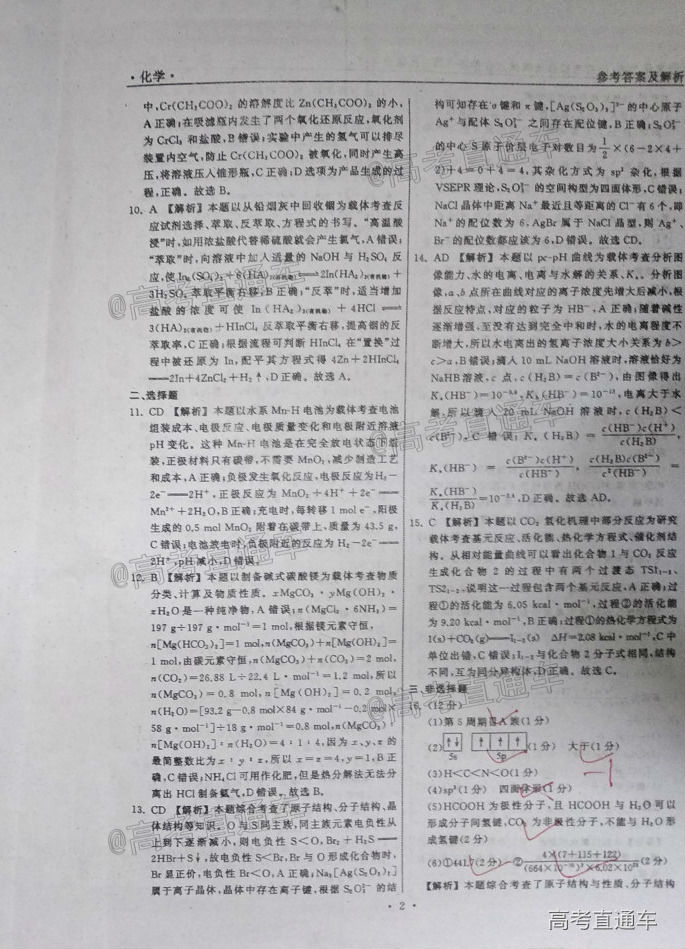 ·化学·
参考答案及解析
中,Cr(CH₃COO)₂ 的溶解度比 Zn(CH₃COO)₂ 的小,
A正确;在吸滤瓶内发生了两个氧化还原反应,氧化剂
为 CrCl₃ 和盐酸,B错误;实验中产生的氢气可以排尽
装置内空气,防止 Cr(CH₃COO)₂ 被氧化,同时产生高
压,将溶液压入锥形瓶,C正确;D选项为产品生成的过
程,正确。故选B。
10. A 【解析】本题以从铅烟灰中回收铟为载体考查反
应试剂选择、萃取、反萃取、方程式的书写。“高温酸
浸”时,如用浓盐酸代替稀硫酸就会产生氯气,A错误;
“萃取”时,向溶液中加入适量的 NaOH 与 H₂SO₄ 反
应,使 In₂(SO₄)₃+6(HA)₂(有机物)⇌2In(HA₂)₃(有机物)+
3H₂SO₄ 萃取平衡右移,B正确;“反萃”时,适当增加
盐酸的浓度可使 In(HA₂)₃(有机物)+4HCl⇌
3(HA)₂(有机物)+HInCl₄ 反萃取平衡右移,提高铟的反
萃取率,C正确;根据流程可判断 HInCl₄ 在“置换”过
程中被还原为 In,配平其方程式得 4Zn+2HInCl₄
══2In+4ZnCl₂+H₂↑,D正确。故选A。
二、选择题
11. CD 【解析】本题以水系 Mn-H 电池为载体考查电池
组装成本、电极反应、电极质量变化和电极附近溶液
pH变化。这种 Mn-H 电池是在完全放电状态下组
装,正极材料只有碳带,不需要 MnO₂,减少制造工艺
和成本,A正确;负极发生氧化反应,电极反应为H₂−
2e⁻══2H⁺,正极反应为 MnO₂+4H⁺+2e⁻══
Mn²⁺+2H₂O,B正确;充电时,每转移 1 mol e⁻,阳极
生成的 0.5 mol MnO₂ 附着在碳带上,质量为 43.5 g,
C错误;电池放电时,负极附近的反应为 H₂−2e⁻══
2H⁺,pH减小,D错误。
12. B 【解析】本题以制备碱式碳酸镁为载体考查物质
分类、计算及物质性质。xMgCO₃·yMg(OH)₂·
zH₂O是一种纯净物,A错误;n(MgCl₂·6NH₃)=
197 g÷197 g·mol⁻¹=1 mol,根据镁元素守恒,
n[Mg(HCO₃)₂]=1 mol,n(MgCO₃)+n[Mg(OH)₂]=
1 mol,由碳元素守恒,n(MgCO₃)+n(CO₂)=2 mol,
n(CO₂)=26.88 L÷22.4 L·mol⁻¹=1.2 mol,所以
n(MgCO₃)=0.8 mol,n[Mg(OH)₂]=0.2 mol,
n(H₂O)=[93.2 g−0.8 mol×84 g·mol⁻¹−0.2 mol×
58 g·mol⁻¹]÷18 g·mol⁻¹=0.8 mol,n(MgCO₃):
n[Mg(OH)₂]:n(H₂O)=4:1:4,因为x、y、z的
最简整数比为x:y:z,所以 x=z=4,y=1,B正
确,C错误;NH₄Cl可用作化肥,但是热分解法无法分
离出 HCl制备氨气,D错误。故选B。
13. CD 【解析】本题综合考查了原子结构、分子结构、晶
体结构等知识。O与S同主族,同主族元素电负性从
上到下逐渐减小,则电负性 S<O,Br₂+H₂S══
2HBr+S↓,故电负性 S<Br,Br与O形成化合物时,
Br显正价,电负性 Br<O,A正确;Na₃[Ag(S₂O₃)₂]
属于离子晶体,晶体中存在离子键,根据 S₂O₃²⁻ 的结
构可知存在σ键和π键,[Ag(S₂O₃)₂]³⁻ 的中心原子
Ag⁺与配体 S₂O₃²⁻ 之间存在配位键,B正确;S₂O₃²⁻
的中心S原子价层电子对数目为 1/2×(6−2×4+
2)+4=0+4=4,其杂化方式为 sp³ 杂化,根据
VSEPR理论,S₂O₃²⁻ 的空间构型为四面体形,C错误;
NaCl晶体中距离 Na⁺ 最近且等距离的 Cl⁻ 有6个,即
Na⁺的配位数为6,AgBr属于NaCl晶型,则 Ag⁺、
Br⁻的配位数都应该为6,D错误。故选CD。
14. AD 【解析】本题以 pc-pH 曲线为载体考查分析图
像能力、水的电离、电离与水解的关系、Kₐ。分析图
像,a、b点所在曲线对应的离子浓度先增大后减小,根
据反应特点,对应的粒子为 HB⁻,A正确;随着碱性
逐渐增强,至没有达到完全中和时,水的电离程度不
断增大,所以水电离出的氢离子浓度大小关系为 b>
c>a,B错误;滴入 10 mL NaOH溶液时,溶液恰好为
NaHB溶液,c点,c(H₂B)=c(B²⁻),由图像得出
解,所以滴入 20 mL NaOH 溶液时,c(H₂B)<
c(B²⁻),C错误;Kₐ(H₂B)=c(HB⁻)c(H⁺)/c(H₂B),
Kₐ(HB⁻)=c(B²⁻)c(H⁺)/c(HB⁻),c(H₂B)c(B²⁻)/c²(HB⁻)=
Kₐ(HB⁻)/Kₐ(H₂B)=10⁻³·⁴,D正确。故选AD。
15. C 【解析】本题以 CO₂ 氢化机理中部分反应为研究
载体考查基元反应、活化能、热化学方程式、催化剂结
构。从相对能量曲线可以看出化合物1与CO₂反应
生成化合物2的过程中有两个过渡态 TS1₁₋₂、
TS2₁₋₂,说明这一过程包含两个基元反应,A正确;过
程①的活化能为 6.05 kcal·mol⁻¹,过程②的活化能
为9.20 kcal·mol⁻¹,B正确;过程①的热化学方程式为
1(s)+CO₂(g)══I₁₋₂(s) ΔH=2.08 kcal·mol⁻¹,C中
单位出错,C错误;I₁₋₂与化合物2分子式相同,结构
不同,互为同分异构体,D正确。故选C。
三、非选择题
16. (12分)
(1)第5周期ⅢA族(1分)
(2) ↑↓ ↑ ↑ ↑ (1分) 大于(1分)
5s 5p
(3)H<C<N<O(1分)
-1
(4)sp³(1分) 四面体形(1分)
(5)HCOOH为极性分子,且 HCOOH 与 H₂O 可以
形成分子间氢键,CO₂ 为非极性分子,不能与 H₂O 形
成氢键(2分)
(6)①441.7(2分) ②4×(7+115+122)/(664×10⁻¹⁰)³×6.02×10²³(2分)
【解析】本题综合考查了原子结构与性质、分子结构
·2·
@高考直通车
@高考直通车
@高考直通车
@高考直通车
@高考直通车
@高考直通车
@高考直通车
高考直通车